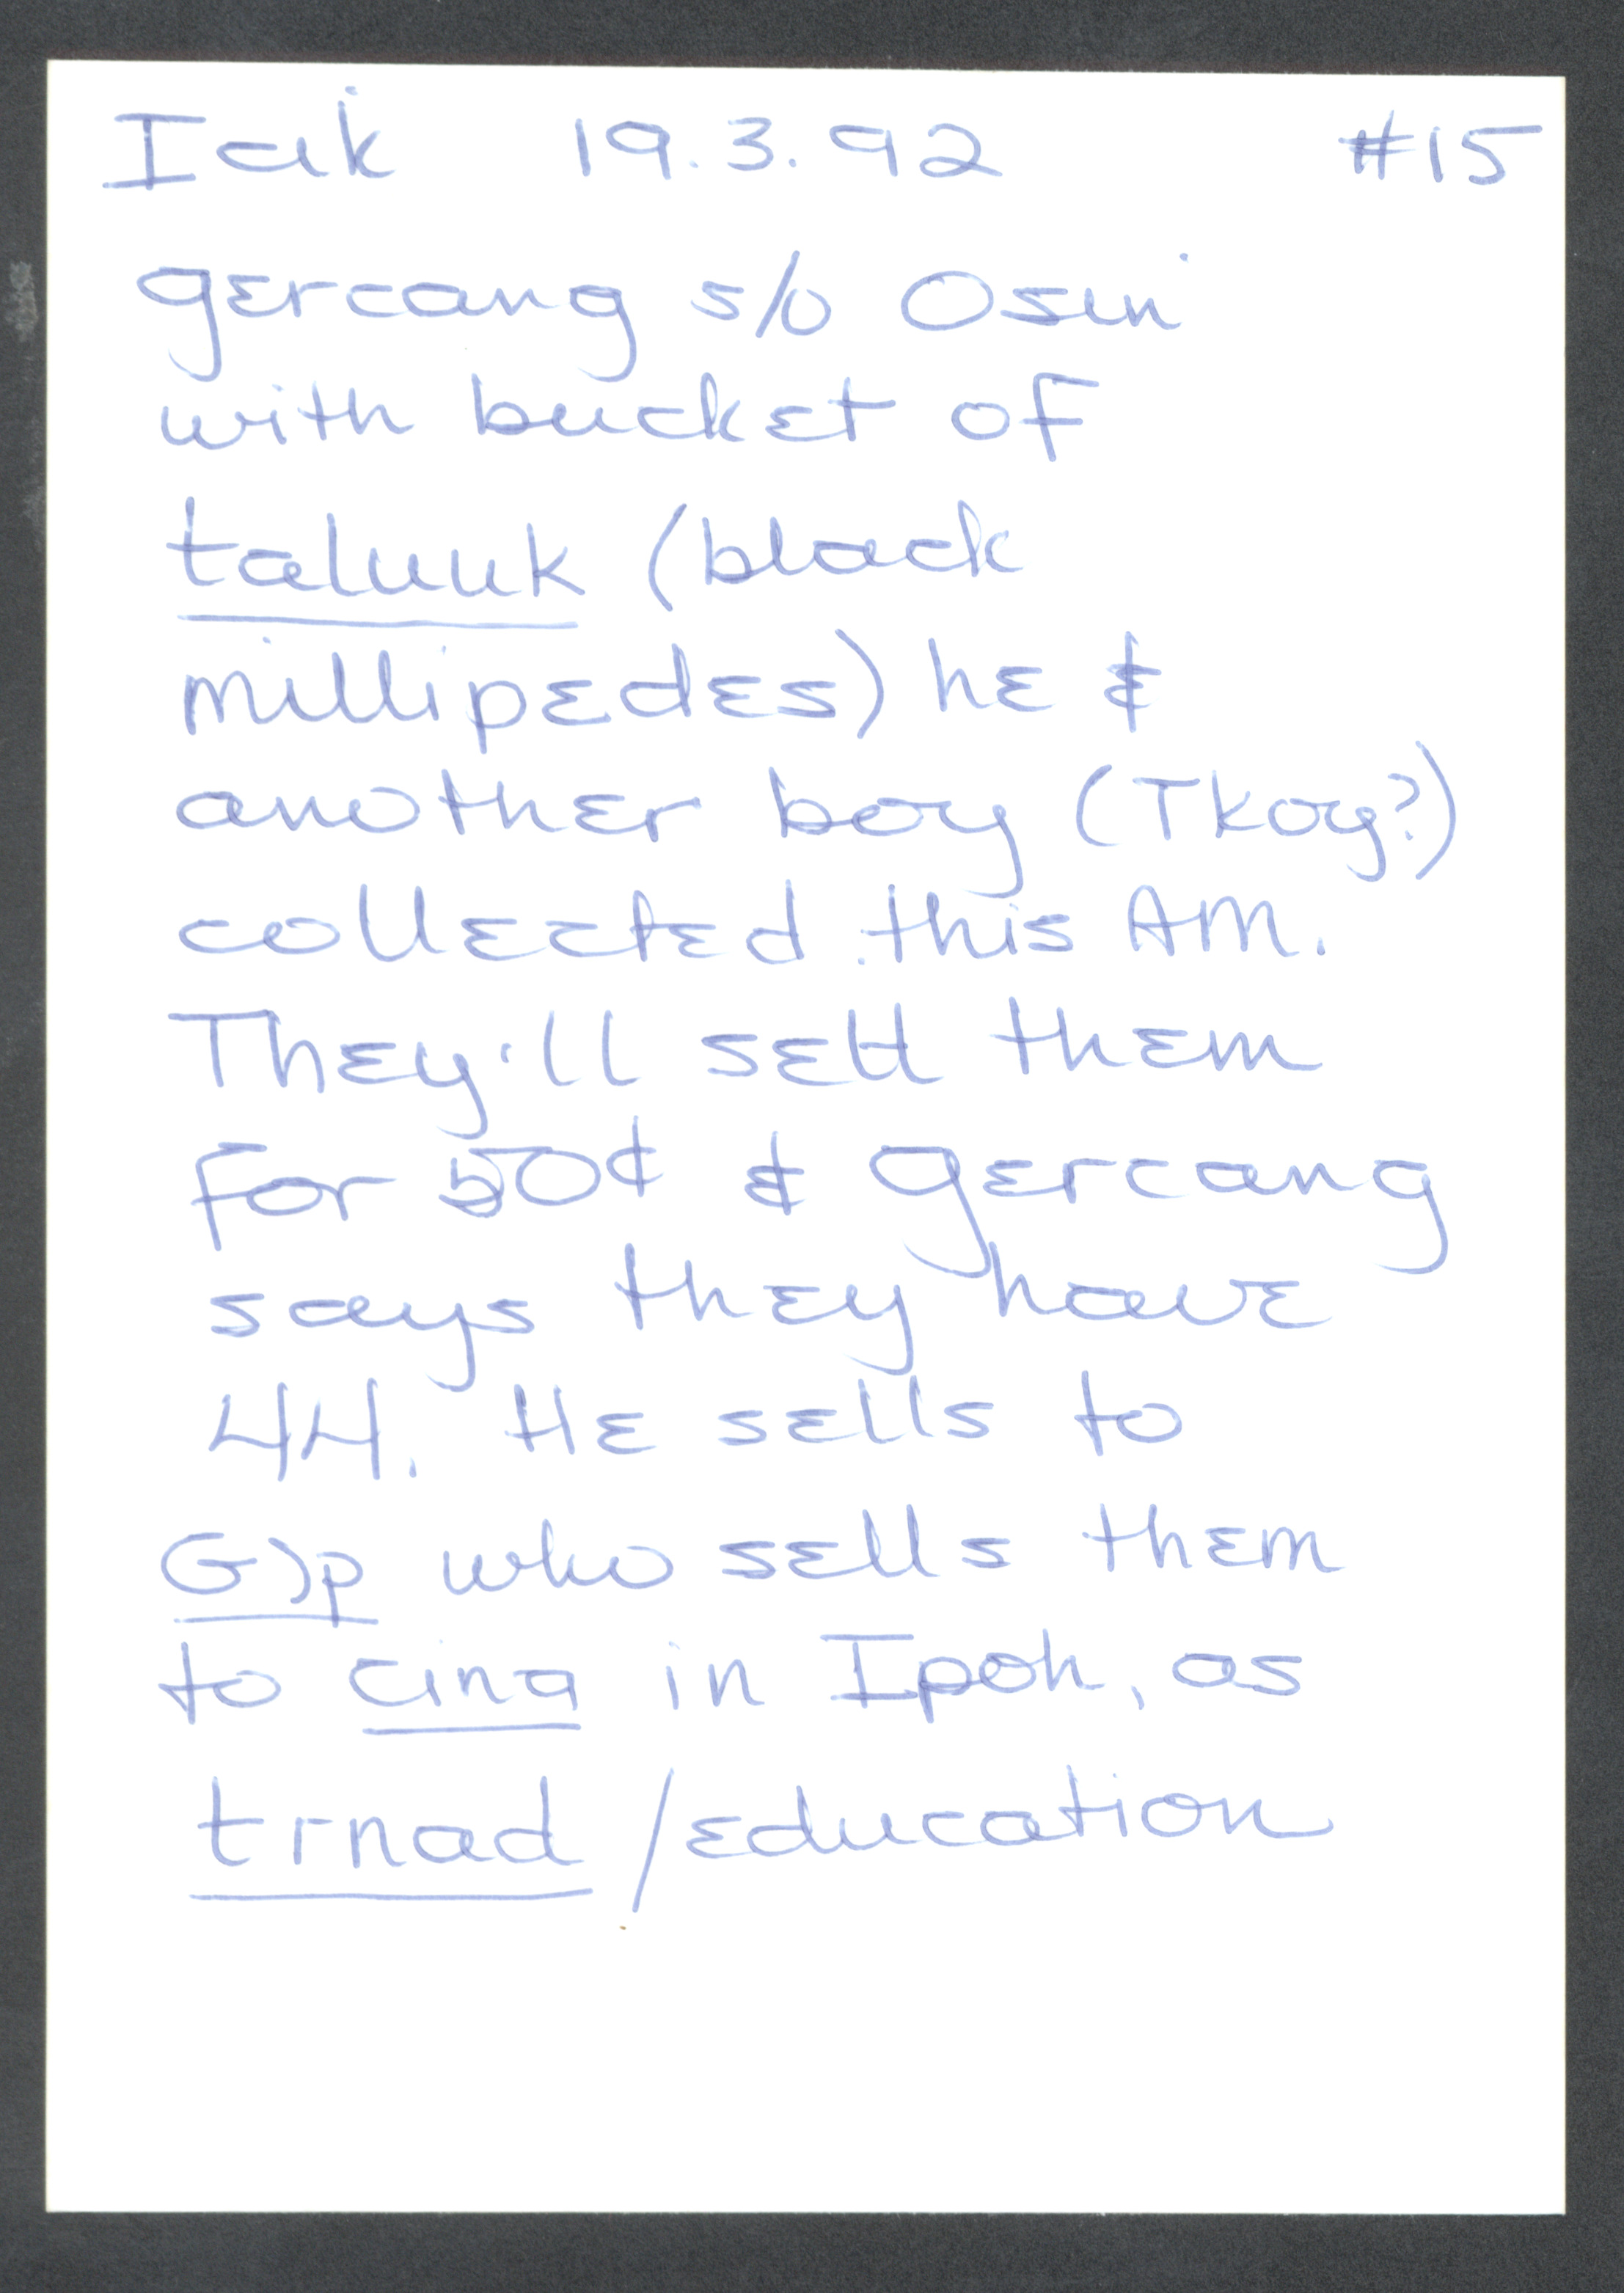 Iak 19.3.92 #15
gercang s/o Osin
with bucket of
taluuk (black
millipedes) he &
another boy (Tkoy?)
collected this AM.
They'll sell them
for 50¢ & gercang
says they have
44. He sells to
G)p who sells them
to cina in Ipoh, as
trnad / education